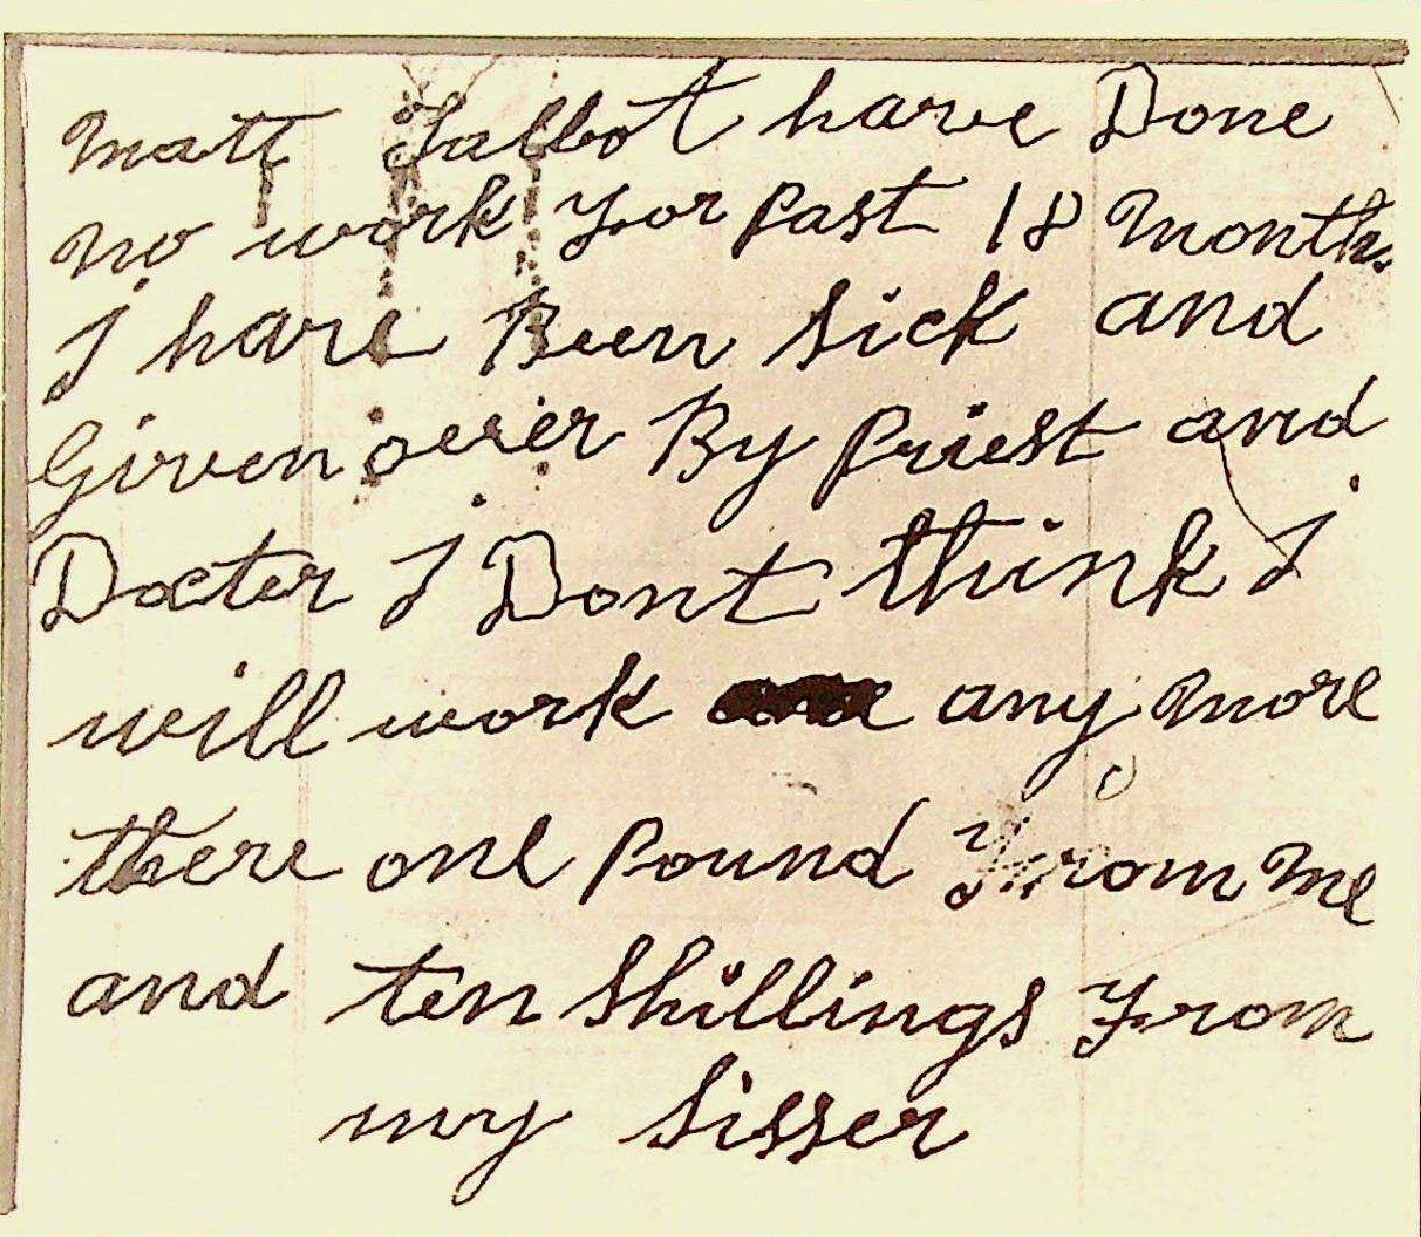 Matt Talbot have Done
no work For past 18 Months
I have Been Sick and
Given over By Priest and
Docter I Dont think I
will work any more
there one Pound From Me
and ten Shillings From
my Sisser